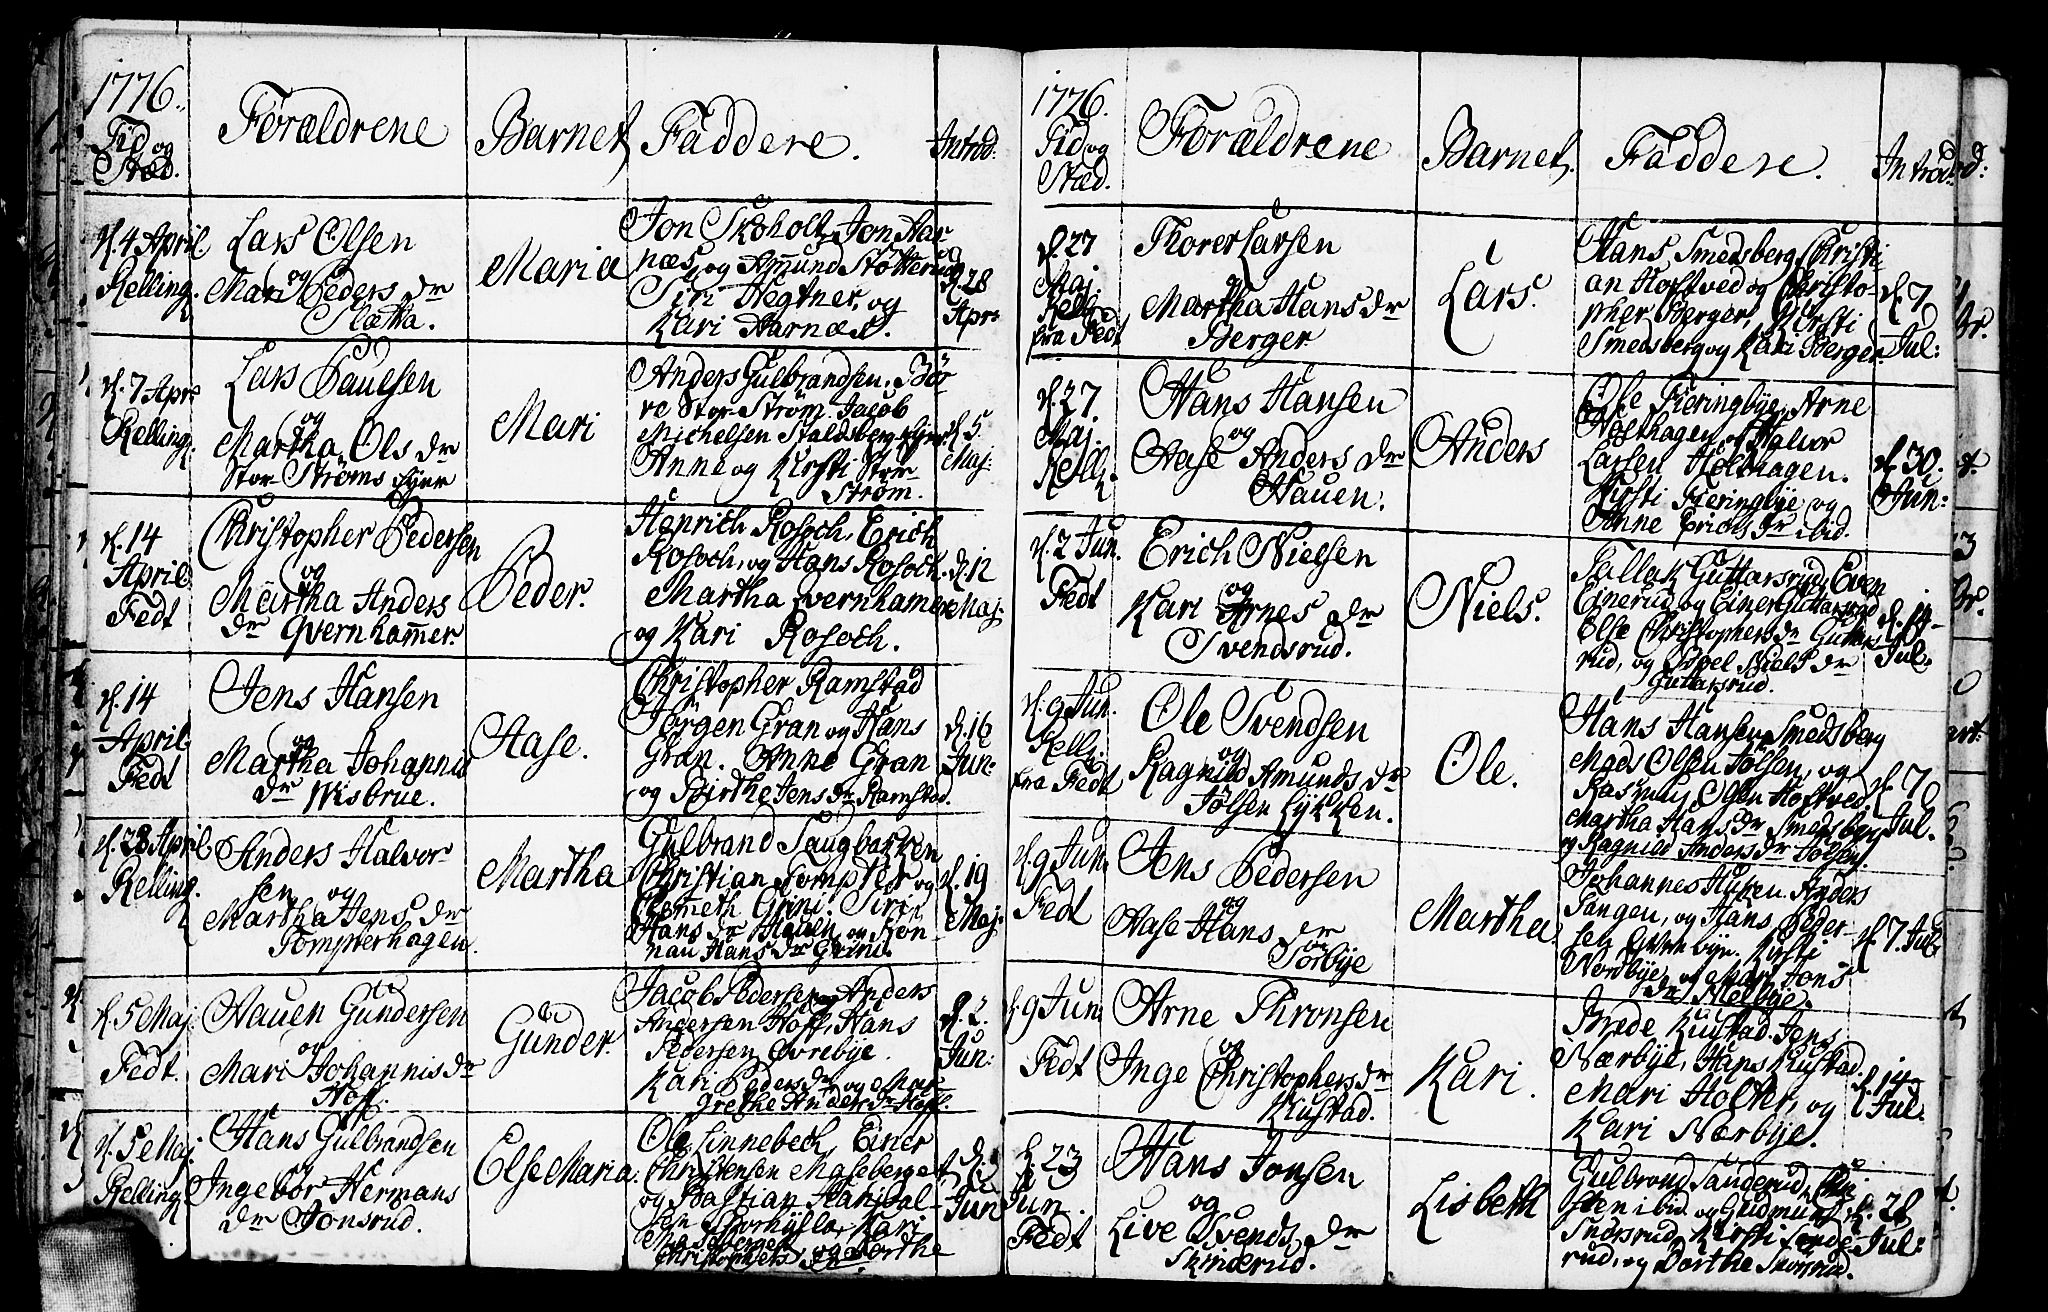 1776.
Tid og
Stæd.
Forældrene
Barnet
Faddere.
Introd:
d. 4 April.
Relling.
Lars Olsen
og
Mari Peders dr
Slætta.
Maria
Jon Skoholt, Jon Aar-
næs, og Amund Stötterud
Siri Hegtner, og
Kari Aarnæs.
d. 28
Apr:
d. 7 Apr:
Relling.
Lars Paulsen
og
Martha Ols dr
Stor-Ströms Eyer
Mari
Anders Gulbrandsen, Bör-
re Stor-Ström. Jacob
Michelsen Staldsberg
Anne og Kirsti Stor-
Ström.
d. 5.
Maj:
d. 14
April.
Fedt
Christopher Pedersen
og
Martha Anders
dr Qvernhammer.
Peder.
Henrich Rosoch, Erich
Rosoch, og Hans Rosoch.
Martha Qvernhamer
og Kari Rosoch.
d. 12
Maj:
d. 14
April.
Fedt
Jens Hansen
og
Martha Johannis
dr Wisbrue.
Aase.
Christopher Ramstad
Jörgen Gran og Hans
Gran. Anne Gran
og Birthe Jens dr Ramstad.
d. 16
Jun:
d. 28 April
Relling.
Anders Halvor-
sen og
Martha Jens dr
Tompterhagen.
Martha
Gulbrand Haugbakken
Christian Tompter og
Clemeth Grini. Siri
Hans dr Hauen og Ron-
nau Hans dr Grini.
d. 19
Maj:
d. 5 Maj:
Fedt.
Hauen Gundersen
og
Mari Johannis dr
Hoff.
Gunder.
Jacob Pedersen og Anders
Andersen Hoff, Hans
Pedersen Övrebye.
Kari Peders dr og Mar-
grethe Anders dr Hoff.
d. 2.
Jun:
d. 5 Maj:
Relling
Hans Gulbrandsen
Ingebor Hermans
dr Jonsrud.
Else Maria.
Ole Linnebech, Einer
Christensen Maseberget
og Bastian Hanibal-
sen Kari
Maseberget og Dorthe
Christophers dr
Jun
1776.
Tid og
Stæd.
Forældrene
Barnet.
Faddere.
Introd:
d. 27
Maj.
Relly
fra Fedt
Thorer Larsen
og
Martha Hans dr
Berger
Lars.
Hans Smedsberg, Christi-
an Hoftved og Christo-
pher Berger, Kirsti
Smedsberg og Kari Berger.
d. 7
Jul:
d. 27.
Maj.
Relly.
Hans Hansen
og
Aase Anders dr
Hauen.
Anders
Ole Fieringbye, Arne
Holthagen og Halvor
Larsen Holthagen.
Kirsti Fieringbye og
Anne Erichs dr ibid.
d. 30.
Jun:
d. 2 Jun.
Fedt
Erich Nielsen
og
Kari Arnes dr
Svendsrud.
Niels.
Tallak Guttarsrud, Even
Einerud og Einer Guttarsrud
Else Christophers dr Guttars-
rud, og Boel Niels dr
Guttarsrud.
d. 14
Jul:
d. 9 Jun.
Relly.
fra Fedt
Ole Svendsen
og
Ragnild Amunds dr
Jölsen Lykken.
Ole.
Hans Hansen Smedsberg
Mads Olsen Jölsen, og
Rasmus Olsen Hoftved.
Martha Hans dr Smedsberg
og Ragnild Anders dr Jölsen.
d. 7
Jul.
d. 9 Jun.
Fedt
Jens Pedersen
og
Aase Hans dr
Sörbye
Martha.
Johannes Huken Anders
Tangen, og Hans Peder-
sen Kirsti
Nordbye, og Mari Jons
dr Melbye.
d. 7. Jul:
d. 9 Jun.
Fedt
Arne Thronsen
og
Inge Christophers dr
Kustad.
Kari.
Brede Kustad. Jens
Nærbye, Hans Kustad.
Mari Holter, og
Kari Nærbye.
d. 14
Jul.
d. 23
Jun.
Fedt
Hans Jonsen
og
Live Svends dr
Skinderud.
Lisbeth
Gulbrand Sanderud,
sten ibid. og Gudmund
Kirsti
rud, og Dorthe
d. 28
Jul: